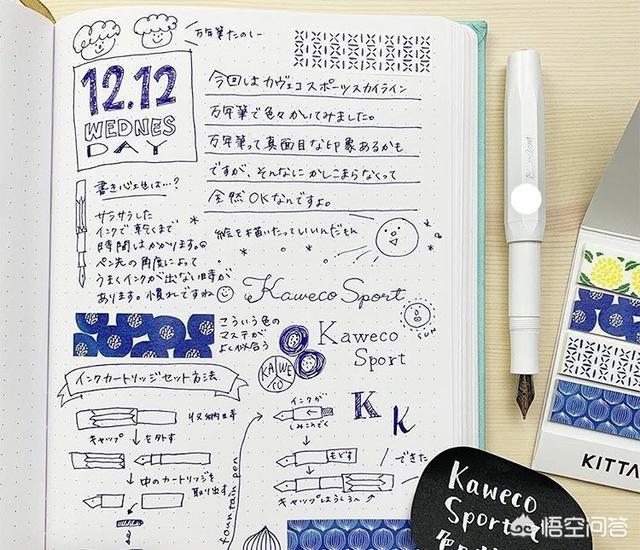 万年筆たのしー
12.12
WEDNES
DAY
今回はカヴェコスポーツスカイライン
万年筆で色々かいてみました。
万年筆って真面目な印象あるかも
ですが、そんなにかしこまらなくって
全然OKなんですよ。
絵を描いたっていいんだもん
書き心地は…?
サラサラした
インクで乾くまで
時間はかかります。
ペン先の角度によって
うまくインクが出ない時が
あります。慣れですね
Kaweco Sport
SUN
こういう色の
マステが
よく似合う
KAWE
CO
Kaweco
Sport
インクカートリッジセット方法
収納時
キャップ
を外す
中のカートリッジを
取り出す
fountain pen
インクが
しみこんでく
もどす
できた
キャップはうしろへ
K
K
KITTA
Kaweco
Sport
悟空问答